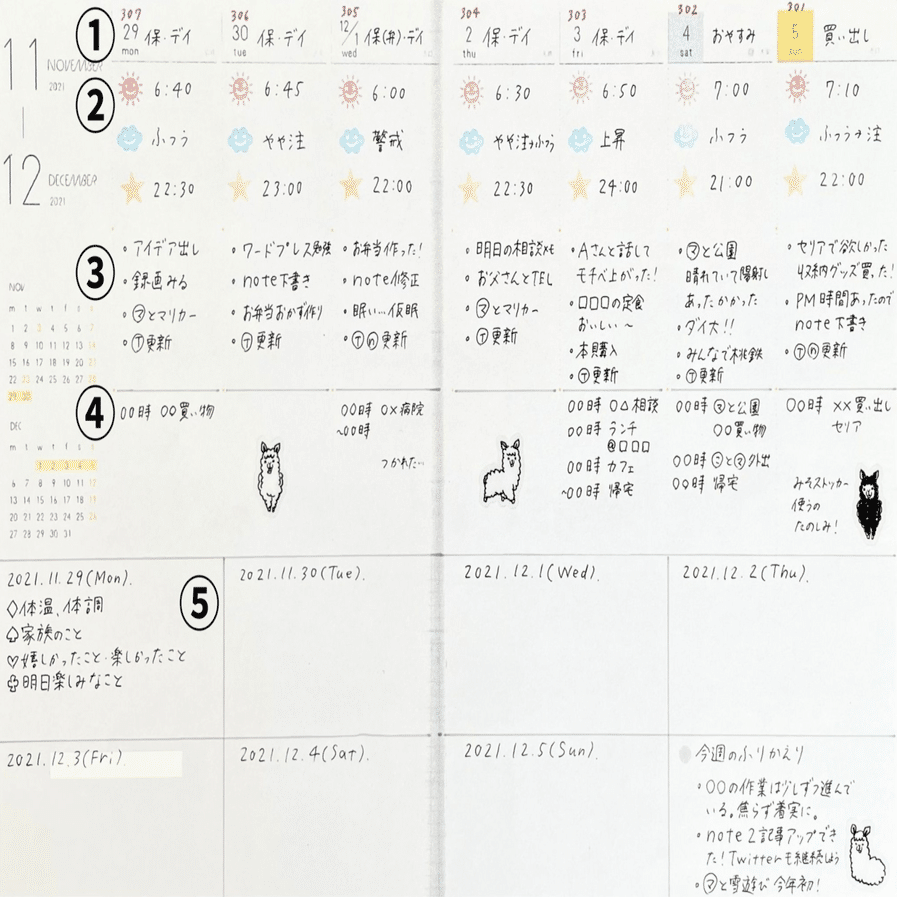 11
NOVEMBER
2021
12
DECEMBER
2021
①
307
29
mon
保・デイ
306
30
tue
保・デイ
305
12/1
wed
保(弁)・デイ
304
2
thu
保・デイ
303
3
fri
保・デイ
302
4
sat
おやすみ
301
5
sun
買い出し
②
6:40
6:45
6:00
6:30
6:50
7:00
7:10
ふつう
やや注
警戒
やや注→ふつう
上昇
ふつう
ふつう→注
22:30
23:00
22:00
22:30
24:00
21:00
22:00
③
・アイデア出し
・録画みる
・㋮とマリカー
・Ⓣ更新
・ワードプレス勉強
・note下書き
・お弁当おかず作り
・Ⓣ更新
・お弁当作った!
・note修正
・眠い…仮眠
・Ⓣⓝ更新
・明日の相談メモ
・お父さんとTEL
・㋮とマリカー
・Ⓣ更新
・Aさんと話して
モチベ上がった!
・□□□の定食
おいしい～
・本購入
・Ⓣ更新
・㋮と公園
晴れていて陽射し
あったかかった
・ダイ大!!
・みんなで桃鉄
・Ⓣ更新
・セリアで欲しかった
収納グッズ買った!
・PM時間あったので
note下書き
・Ⓣⓝ更新
NOV
m t w t f s s
1 2 3 4 5 6 7
8 9 10 11 12 13 14
15 16 17 18 19 20 21
22 23 24 25 26 27 28
29 30
DEC
m t w t f s s
1 2 3 4 5
6 7 8 9 10 11 12
13 14 15 16 17 18 19
20 21 22 23 24 25 26
27 28 29 30 31
④
○○時 ○○買い物
○○時 ○×病院
～○○時
つかれた…
○○時 ○△相談
○○時 ランチ
@□□□
○○時 カフェ
～○○時 帰宅
○○時 ㋮と公園
○○買い物
○○時 ㋥と㋮外出
○○時 帰宅
○○時 ××買い出し
セリア
みそストッカー
使うの
たのしみ!
⑤
2021.11.29(Mon).
♢体温、体調
♤家族のこと
♡嬉しかったこと・楽しかったこと
♧明日楽しみなこと
2021.11.30(Tue).
2021.12.1(Wed).
2021.12.2(Thu).
2021.12.3(Fri)
2021.12.4(Sat).
2021.12.5(Sun).
今週のふりかえり
・○○の作業は少しずつ進んで
いる。焦らず着実に。
・note2記事アップでき
た!Twitterも継続しよう
・㋮と雪遊び 今年初!